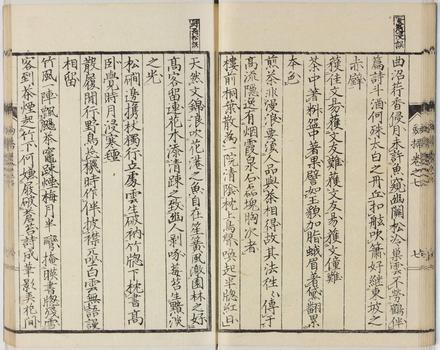 曲沼荇香侵月未許魚窺幽關松冷巢雲不勞鶴伴
篇詩斗酒何殊太白之丹丘扣舷吹簫好繼東坡之
赤壁
獲佳文易獲文友難獲文友易獲文僮難
茶中著料盌中著果譬如玉貌加脂蛾眉著黛翻累
本色
煎茶非漫浪要湏人品與茶相得故其法徃〻傳于
高流隱逸有烟霞泉石磊塊胸次者
樓前桐葉散為一院清陰枕上鳥聲喚起半牕紅日
天然文錦浪吹花港之魚自在笙簧風園林之
高客留連花木添清疎之致幽人剝啄莓苔生黯淡
之光
松㵎邊携杖獨行立處雲生破衲竹牕下枕書高
卧覺時月浸寒氊
散履閒行野鳥忘機時作伴披襟兀坐白雲無語謾
相留
竹風一陣飄颺茶竈疎煙梅月半灣掩映書牕殘雪
客到茶煙起竹下何嫌屐破蒼苔詩成筆影弄花間